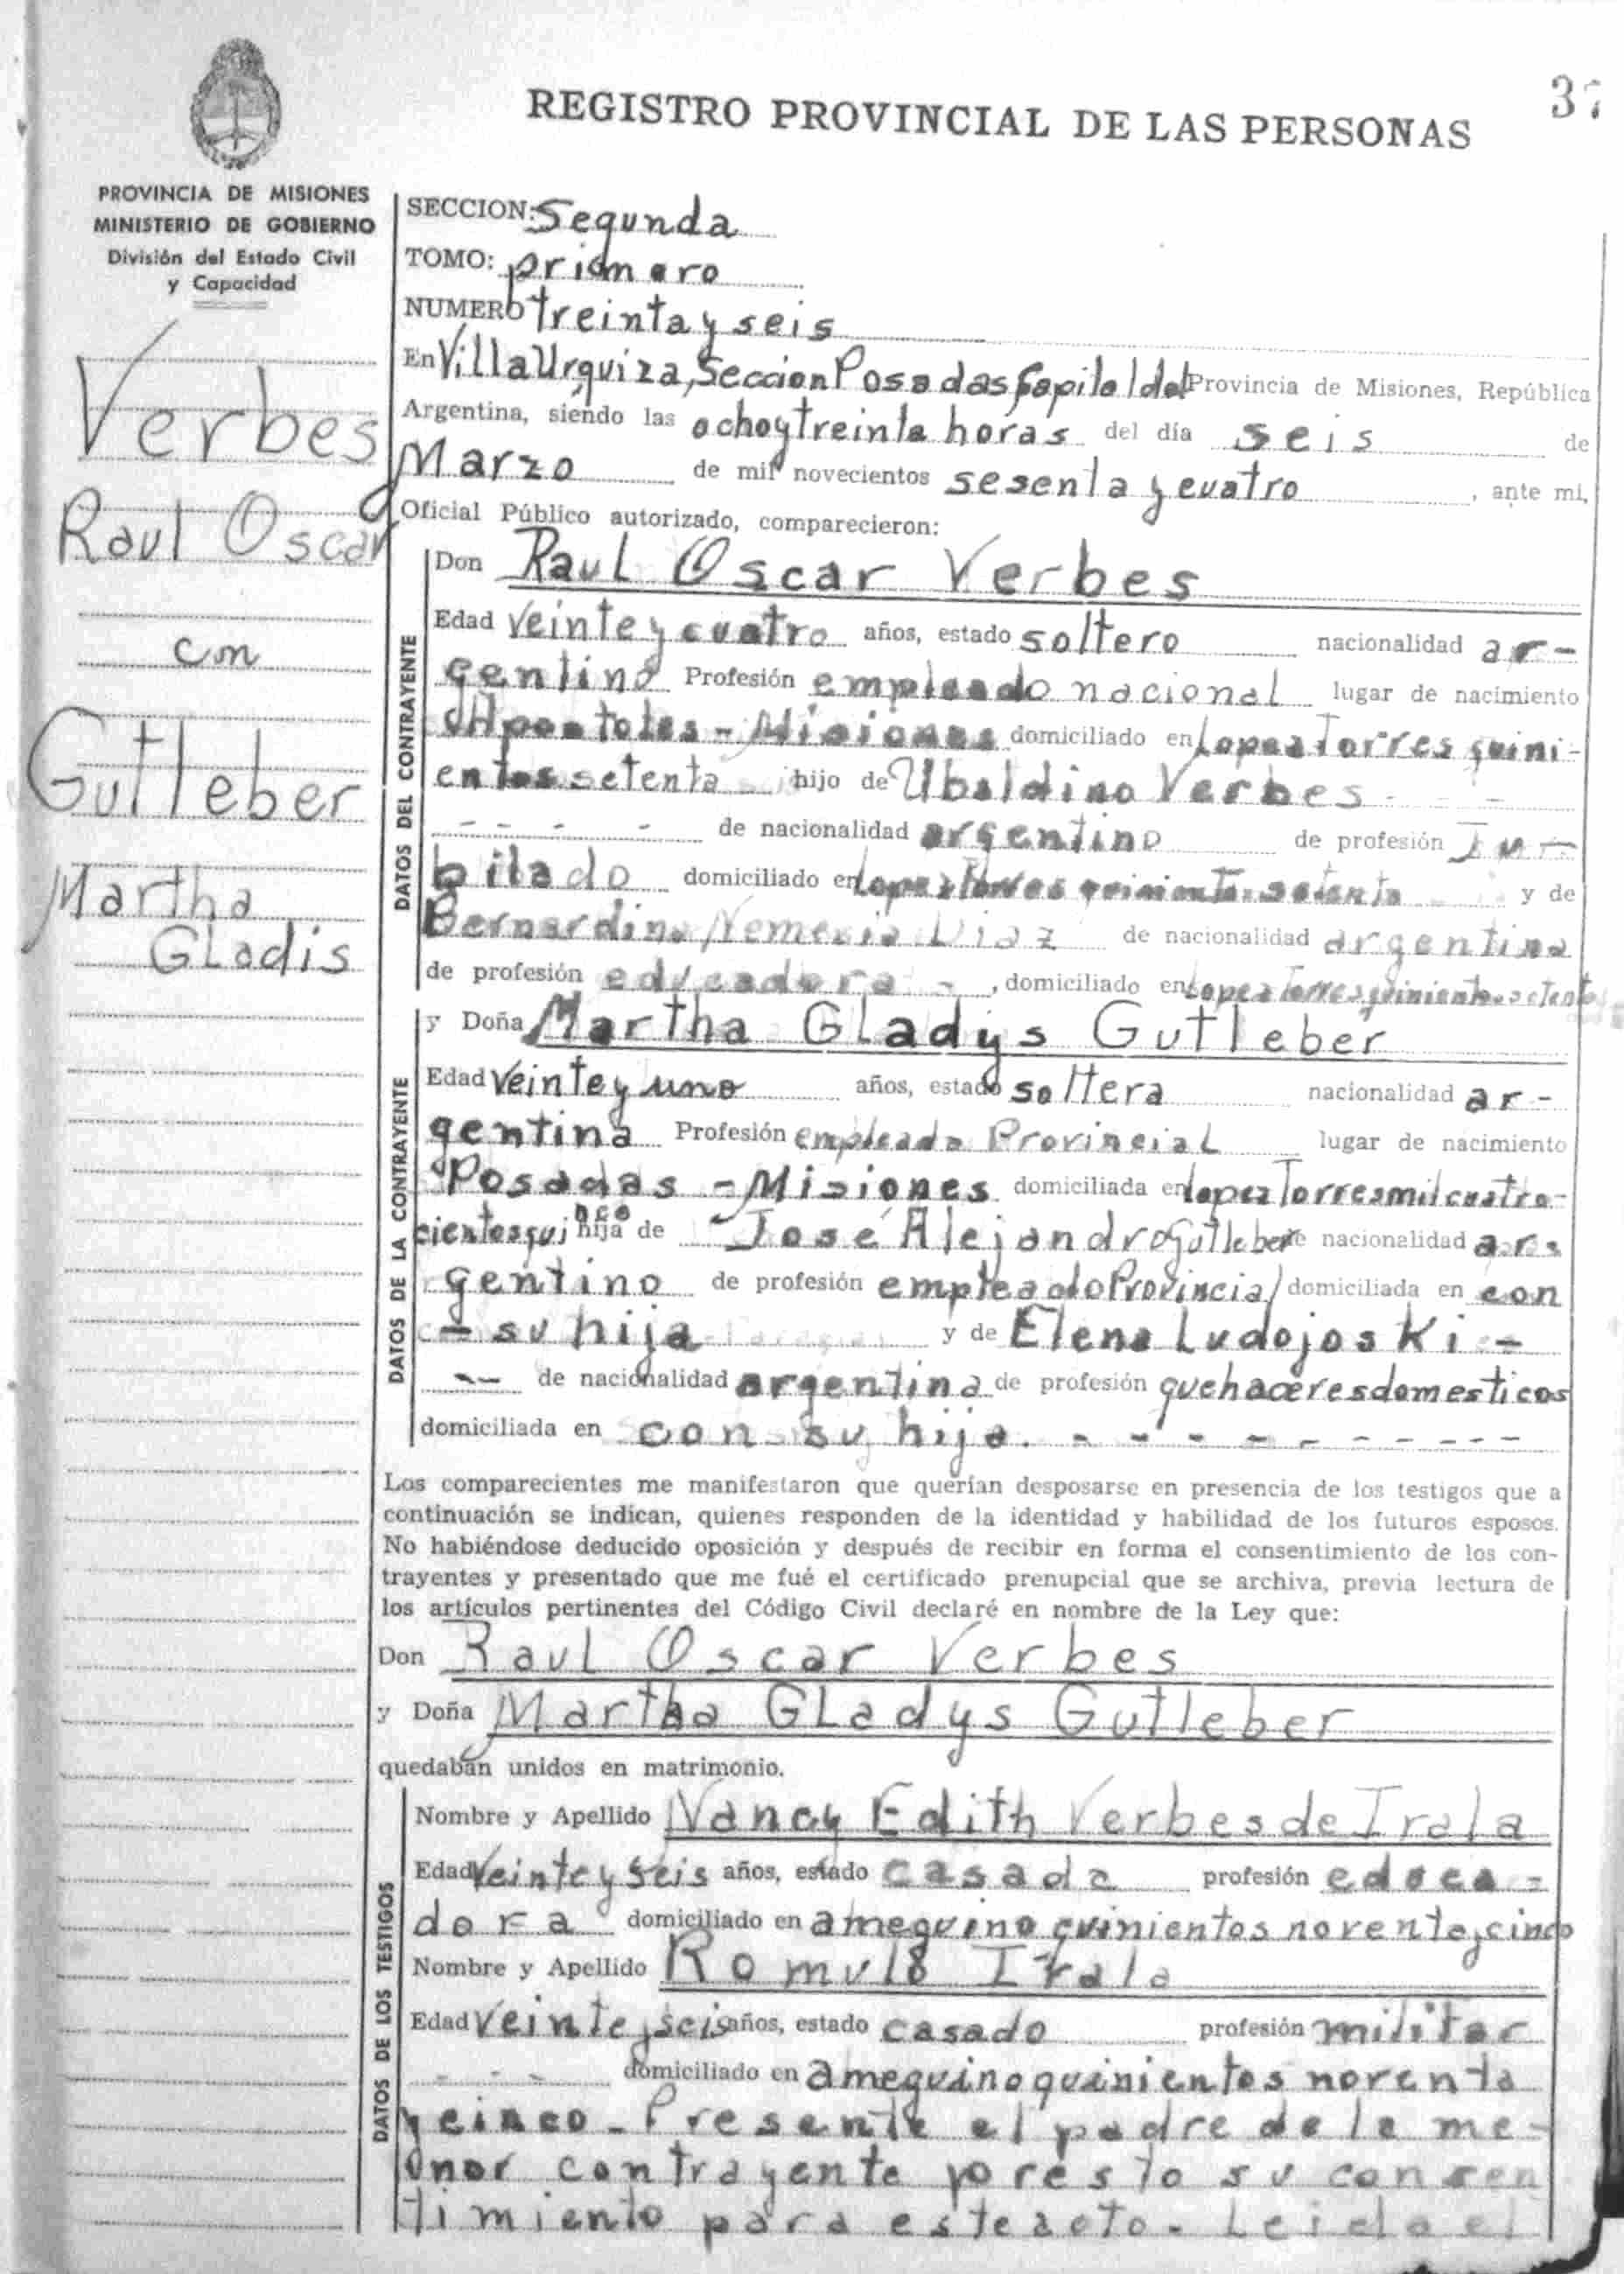 37
REGISTRO PROVINCIAL DE LAS PERSONAS
PROVINCIA DE MISIONES
MINISTERIO DE GOBIERNO
División del Estado Civil
y Capacidad
Verbes
Raul Oscar
con
Gutleber
Martha
Gladis
SECCION: Segunda
TOMO: primero
NUMERO treinta y seis
En Villa Urquiza, Seccion Posadas Capital del Provincia de Misiones, República
Argentina, siendo las ocho y treinta horas del día seis de
Marzo de mil novecientos sesenta y cuatro, ante mi,
Oficial Público autorizado, comparecieron:
DATOS DEL CONTRAYENTE
Don Raul Oscar Verbes
Edad veinte y cuatro años, estado soltero nacionalidad ar-
gentino Profesión empleado nacional lugar de nacimiento
Apostoles - Misiones domiciliado en Lopez Torres quini-
entos setenta hijo de Ubaldino Verbes - - -
- - - - de nacionalidad argentino de profesión Ju-
bilado domiciliado en Lopez Torres quinientos setenta y de
Bernardina Nemecia Diaz de nacionalidad argentina
de profesión educadora -, domiciliado en Lopez Torres quinientos setenta
DATOS DE LA CONTRAYENTE
y Doña Martha Gladys Gutleber
Edad veinte y uno años, estado soltera nacionalidad ar-
gentina Profesión empleada Provincial lugar de nacimiento
Posadas - Misiones domiciliada en Lopez Torres mil cuatro-
cientos quince hija de José Alejandro Gutleber de nacionalidad ar-
gentino de profesión empleado Provincial domiciliada en con
- su hija y de Elena Ludojoski -
-- de nacionalidad argentina de profesión quehaceres domesticos
domiciliada en con su hija. - - - - - - - - -
Los comparecientes me manifestaron que querían desposarse en presencia de los testigos que a
continuación se indican, quienes responden de la identidad y habilidad de los futuros esposos.
No habiéndose deducido oposición y después de recibir en forma el consentimiento de los con-
trayentes y presentado que me fué el certificado prenupcial que se archiva, previa lectura de
los artículos pertinentes del Código Civil declaré en nombre de la Ley que:
Don Raul Oscar Verbes
y Doña Martha Gladys Gutleber
quedaban unidos en matrimonio.
DATOS DE LOS TESTIGOS
Nombre y Apellido Nancy Edith Verbes de Irala
Edad veinte y seis años, estado casada profesión educa-
dora domiciliado en ameguino quinientos noventa y cinco
Nombre y Apellido Romulo Irala
Edad veinte y seis años, estado casado profesión militar
- - - domiciliado en ameguino quinientos noventa
y cinco - Presente el padre de la me-
nor contrayente presto su consen
timiento para este acto - Leida el